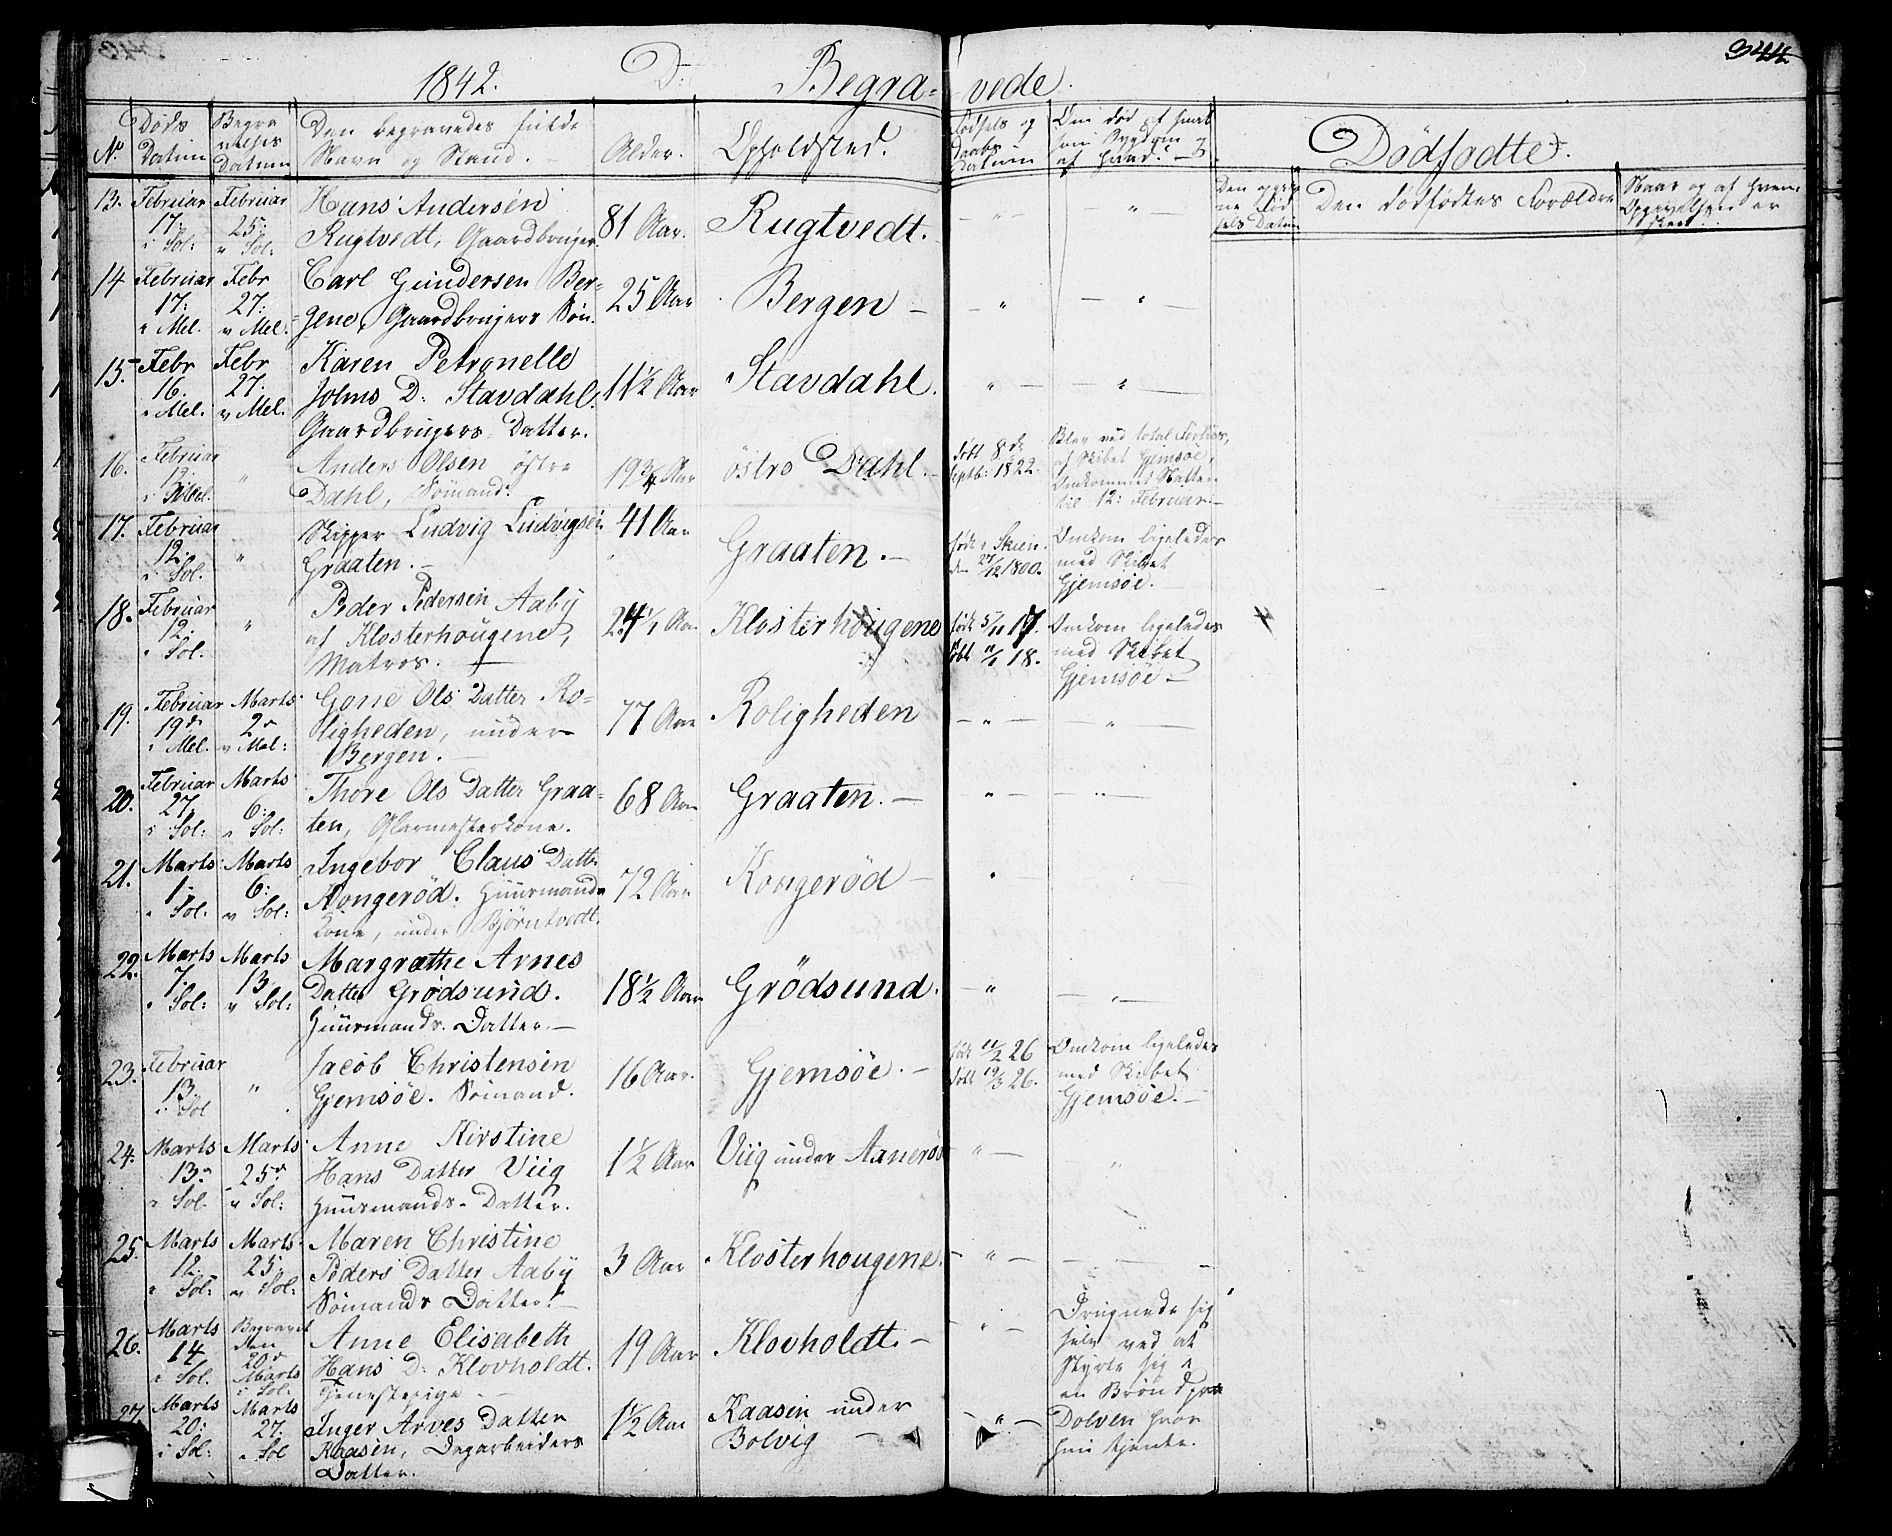 344
1842. D: Begra- vede.
No Døds Datum
Begra velses Datum
Den begravedes fulde Navn og Stand.
Alder.
Opholdsted.
Fødsels og Daabs Datum
Om død af
Dødfødte.
Den dødfødtes Forældre
Naar og af hvem
13. Februar 17: i Sol: Februar 25: v Sol:
Hans Andersen
Rugtvedt, Gaardbruger
81 Aar. Rugtvedt. - " -
14 Februar 17: i Mel. Febr 27: v Mel.
Carl Gundersen Ber-
gene, Gaardbrugers Søn.
25 Aar Bergen - " -
15. Febr 16. i Mel. Febr 27: v Mel.
Karen Petronelle
Johns D: Stavdahl.
Gaardbrugers Datter.
11 1/2 Aar Stavdahl. " - " -
16. Februar 12. i Mel. "
Anders Olsen østre
Dahl, Sømand.
19 3/4 Aar østre Dahl. -
født 8de
Septb: 1822.
Blev ved total Forliis
af Skibet Gjemsøe,
Omkommet Natten
til 12: Februar. -
17. Februar 12. i Sol. "
Skipper Ludvig Ludvigsen
Graaten. -
41 Aar Graaten. -
født i Skien
den 27/12 1800.
Omkom ligeledes
med Skibet
Gjemsøe. -
18. Februar 12. i Sol. "
Peder Pedersen Aaby
af Klosterhougene,
Matros. -
Aar Klosterhougene
født 5/11 17.
Omkom ligeledes
med Skibet
Gjemsøe -
19. Februar 19de i Mel. Marts 2den v Mel:
Gone Ols Datter Ro-
ligheden, under
Bergen. -
77 Aar Roligheden - " - " -
20. Februar 27. i Sol: Marts 6: v Sol:
Thore Ols Datter Graa-
ten, Glarmesterkone.
68 Aar Graaten. -
21. Marts 1. i Sol: Marts 6: v Sol:
Ingebor Claus Datter
Kongerød. Huusmands
kone, under Bjørntvedt.
72 Aar Kongerød -
22. Marts 7. i Sol: Marts 13 v Sol:
Margrethe Arnes
Datter Grødsund.
Huusmands Datter. -
18 1/2 Aar Grødsund. - " - " -
23. Februar 13. i Sol "
Jacob Christensen
Gjemsøe. Sømand.
16 Aar. Gjemsøe. -
født 11/2 26
døbt 19/3 26.
Omkom ligeledes
med Skibet
Gjemsøe. -
24. Marts 13de i Sol. Marts 25de v Sol:
Anne Kirstine
Hans Datter Viig
Huusmands Datter.
1 1/2 Aar Viig under Aanerød - " -
25. Marts 12. i Sol: Marts 25. v Sol:
Maren Christine
Peders Datter Aaby
Sømands Datter. -
3 Aar Klosterhougene. - " -
26. Marts 14 i Sol. Begravet den 20de Marts i Sol:
Anne Elisabeth
Hans D: Klovholdt.
Tjenestepige -
19 Aar Klovholdt. - " -
Druknede sig
selv ved at
styrte sig i
en Brønd paa
Dolven hvor
hun tjente.
27. Marts 20: i Sol: Marts 27: v Sol
Inger Arves Datter
Kaasen, Dagarbeiders
Datter.
1 1/2 Aar Kaasen under
Bolvig - " -